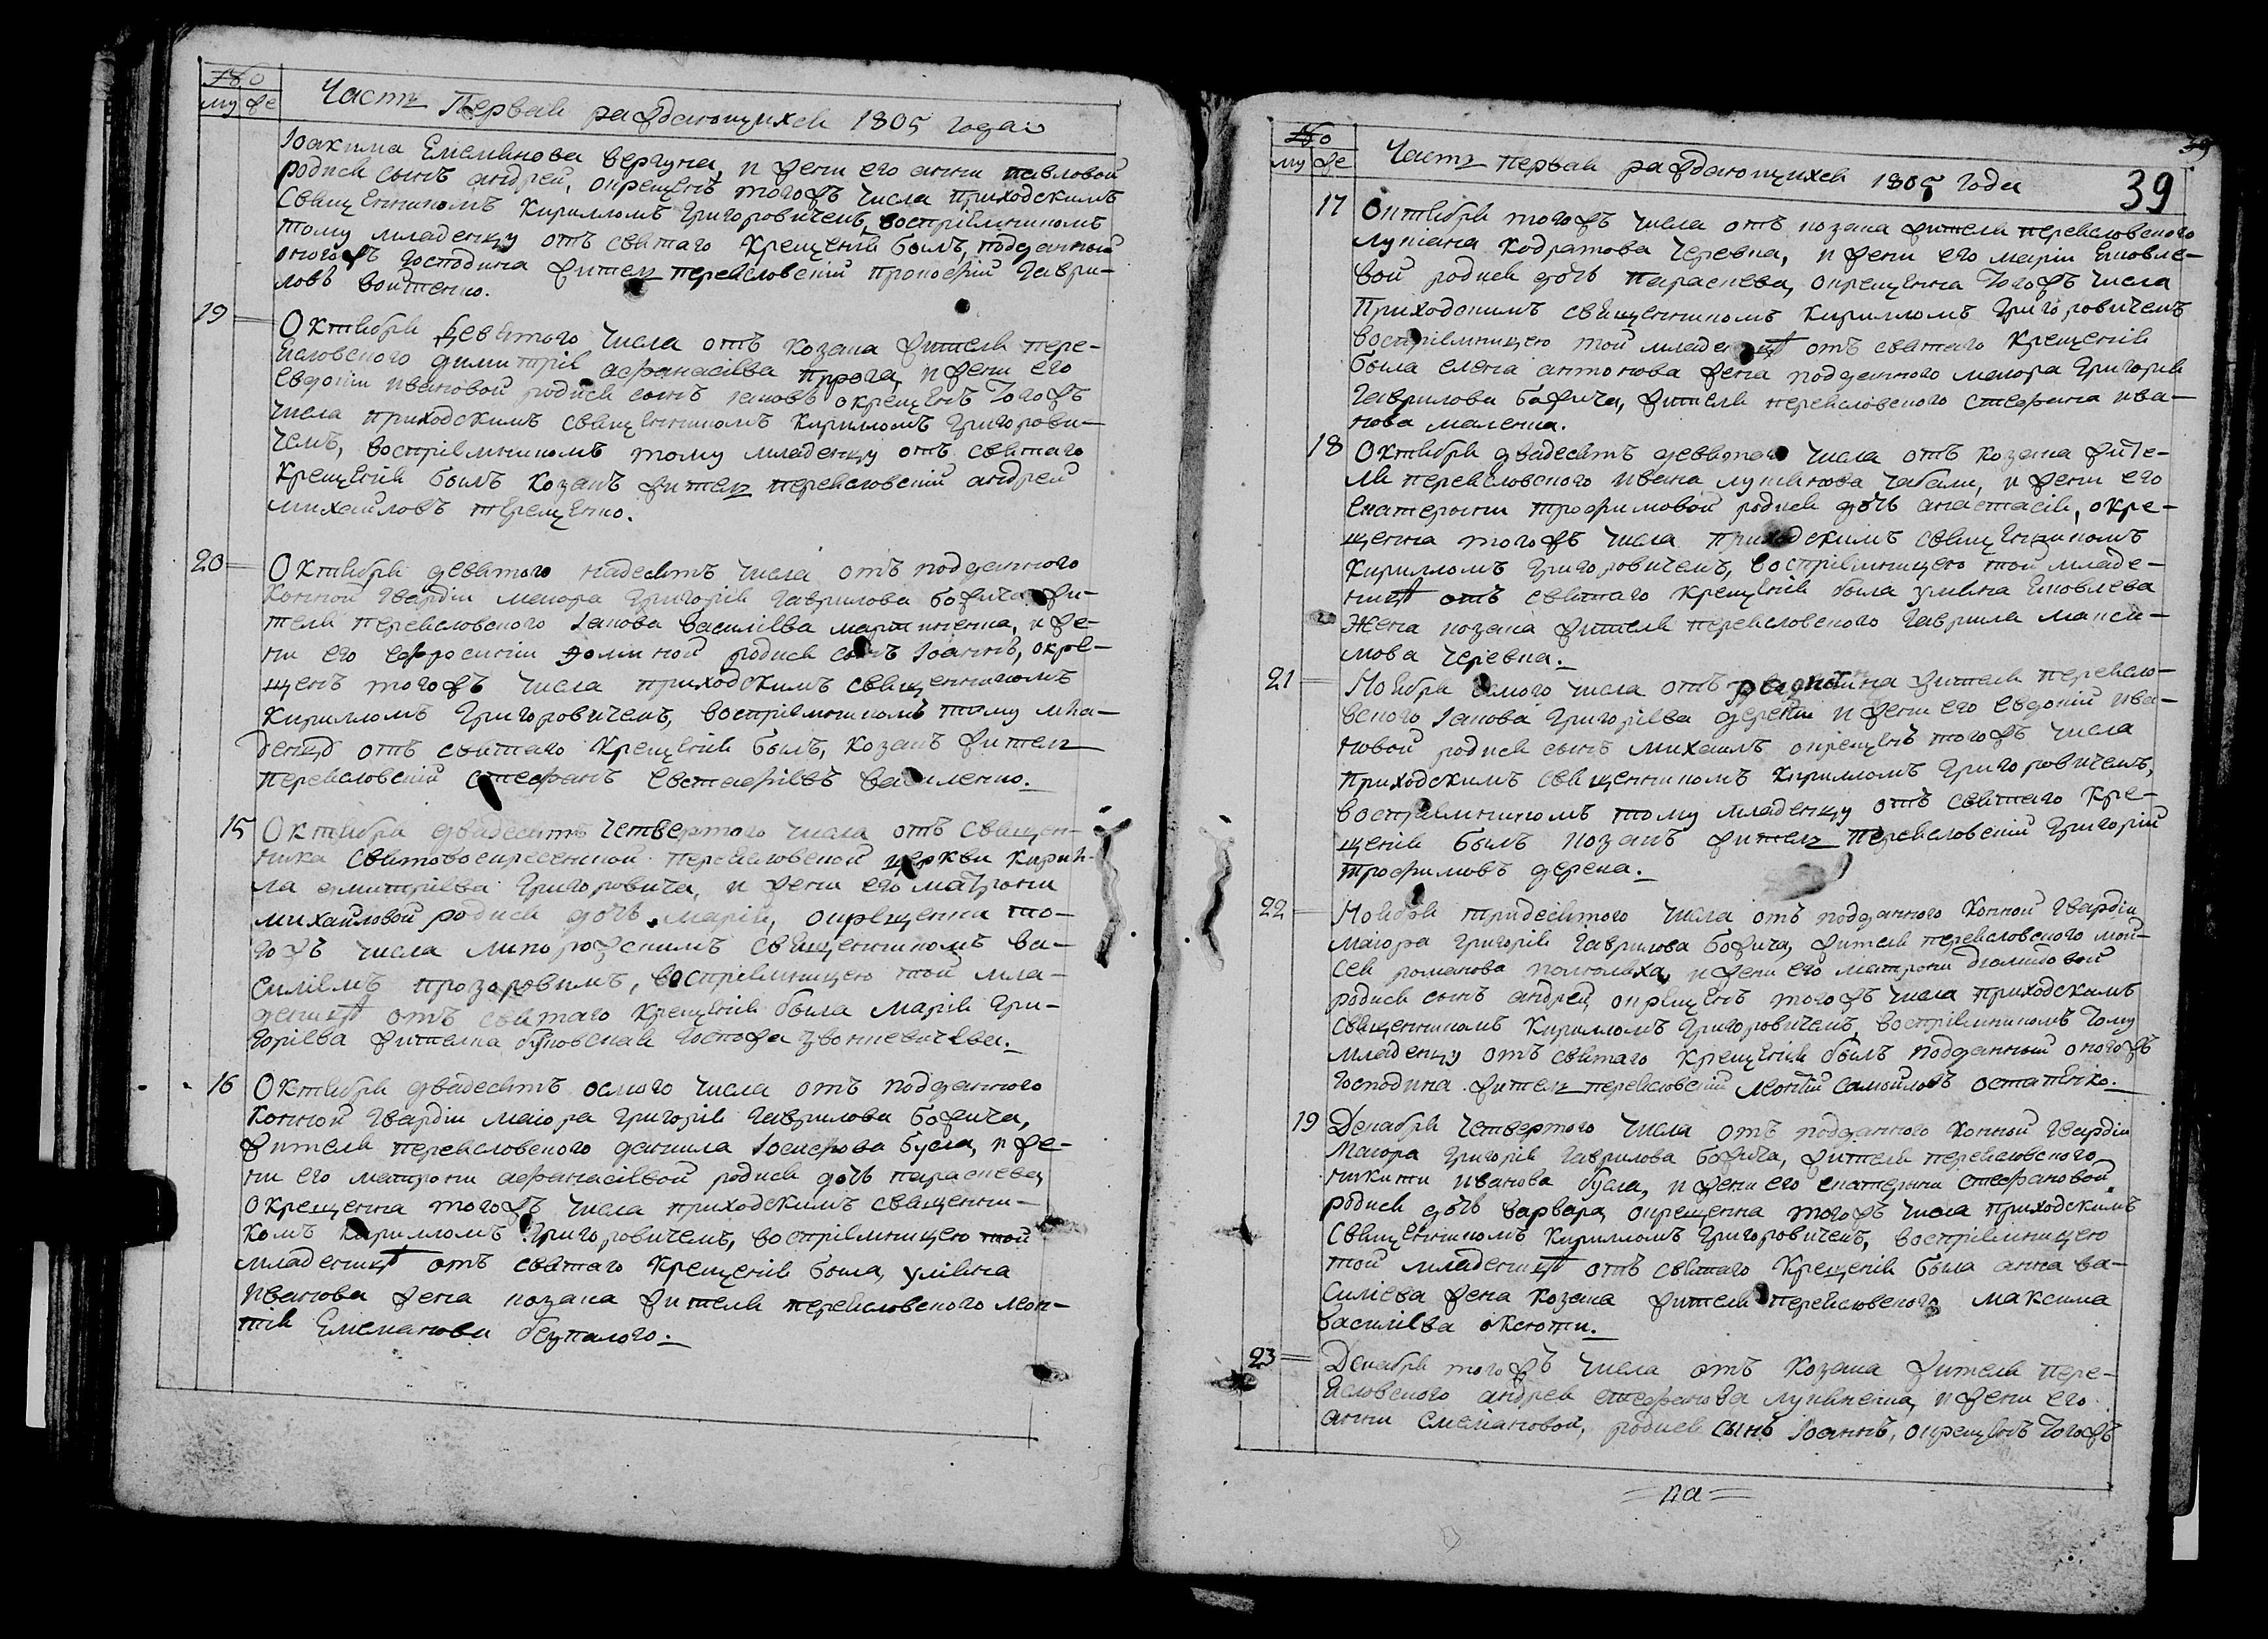 №
му же
Часть Первая раждающихся 1805 года
Iоакима Емелянова вергуна, и жени его анни павловой
родися сынъ андрей, окрещенъ тогожъ числа приходскимъ
Священникомъ Кирилломъ Григоровичемъ, восприемникомъ
тому младенцу отъ святаго Крещенiя былъ, подданный
оногожъ господина житель переясловскiй прокофiй Гаври-
ловъ войтенко.
19 Октября девятого числа отъ козака жителя пере-
ясловского димитрiя афанасiева и жени его
евдокiи ивановой родися сынъ iаковъ окрещенъ тогожъ
числа приходскимъ священникомъ Кирилломъ Григорови-
чемъ, восприемникомъ тому младенцу отъ святаго
Крещенiя былъ козакъ житель переясловскiй андрей
михайловъ терещенко.
20 Октября девятого надесять числа отъ подданного
Конной гвардiи маиора Григорiя Гаврилова божича жи-
теля переясловского Iакова василiева мартиненка, и же-
ни его ефросинiи родися сынъ Iоаннъ, окре-
щенъ тогожъ числа приходскимъ священникомъ
Кирилломъ Григоровичемъ, восприемникомъ тому мла-
денцу отъ святаго Крещенiя былъ, козакъ житель
переясловскiй стефанъ евстафiевъ василенко.
15 Октября двадесять четвертого числа отъ священ-
ника Святовоскресенской переясловской церкви Кирил-
ла димитрiева Григоровича, и жени его матрони
михайловой родися дочь марiя, окрещенна то-
гожъ числа священникомъ ва-
силiемъ прозоровимъ, восприемницею той мла-
деницѣ отъ святаго Крещенiя была марiя Гри-
горiева жителка госпожа
16 Октября двадесять осмого числа отъ подданного
конной гвардiи маiора Григорiя Гаврилова божича,
жителя переясловского данила Iосифова бусла, и же-
ни его матрони афанасiевой родися дочь параскева,
окрещенна тогожъ числа приходскимъ священни-
комъ Кирилломъ Григоровичемъ, восприемницею той
младеницѣ отъ святаго Крещенiя была, улiяна
иванова жена козака жителя переясловского леон-
тiя Емелiанова безпалого.
№
му же
Часть первая раждающихся 1805 года
39
39
17 Октября тогожъ числа отъ козака жителя переясловского
лукiана кодратова черевка, и жени его марiи яковле-
вой родися дочь параскева, окрещенна тогожъ числа
приходскимъ священникомъ Кирилломъ Григоровичемъ
восприемницею той младеницѣ отъ святаго Крещенiя
была елена антонова жена подданного маиора Григорiя
Гаврилова божича, жителя переясловского стефана ива-
нова маленка.
18 Октября двадесять девятого числа отъ козака жите-
ля переясловского ивана лукянова чабали, и жени его
екатерини трофимовой родися дочь анастасiя, окре-
щенна тогожъ числа приходскимъ священникомъ
Кирилломъ Григоровичемъ, восприемницею той младе-
ницѣ отъ святаго Крещенiя была улiяна яковлева
жена козака жителя переясловского Гаврила макси-
мова черевка.
21 Ноября числа отъ жителя переясло-
вского Iакова Григорiева и жени его евдокiи ива-
новой родися сынъ михаилъ окрещенъ тогожъ числа
приходскимъ священникомъ Кирилломъ Григоровичемъ,
восприемникомъ тому младенцу отъ святаго Кре-
щенiя былъ козакъ житель переясловскiй Григорiй
трофимовъ дерека.
22 Ноября тридесятого числа отъ подданного Конной гвардiи
маiора Григорiя Гаврилова божича, жителя переясловского мой-
сея романова и жени его матрони дiомидовой
родися сынъ андрей, окрещенъ тогожъ числа приходскимъ
священникомъ Кирилломъ Григоровичемъ, восприемникомъ тому
младенцу отъ святаго Крещенiя былъ подданный оногожъ
господина житель переясловскiй леонтiй самойловъ остапенко.
19 Декабря четвертого числа отъ подданного Конной гвардiи
маiора Григорiя Гаврилова божича, жителя переясловского
никити иванова бусла, и жени его екатерини стефановой
родися дочь варвара, окрещенна тогожъ числа приходскимъ
Священникомъ Кирилломъ Григоровичемъ, восприемницею
той младеницѣ отъ святаго Крещенiя была анна ва-
силiева жена козака жителя переясловского максима
василiева оксюти.
23 Декабря тогожъ числа отъ козака жителя пере-
ясловского андрея стефанова лукяненка, и жени его
анни емелiановой, родися сынъ Iоаннъ, окрещенъ тогожъ